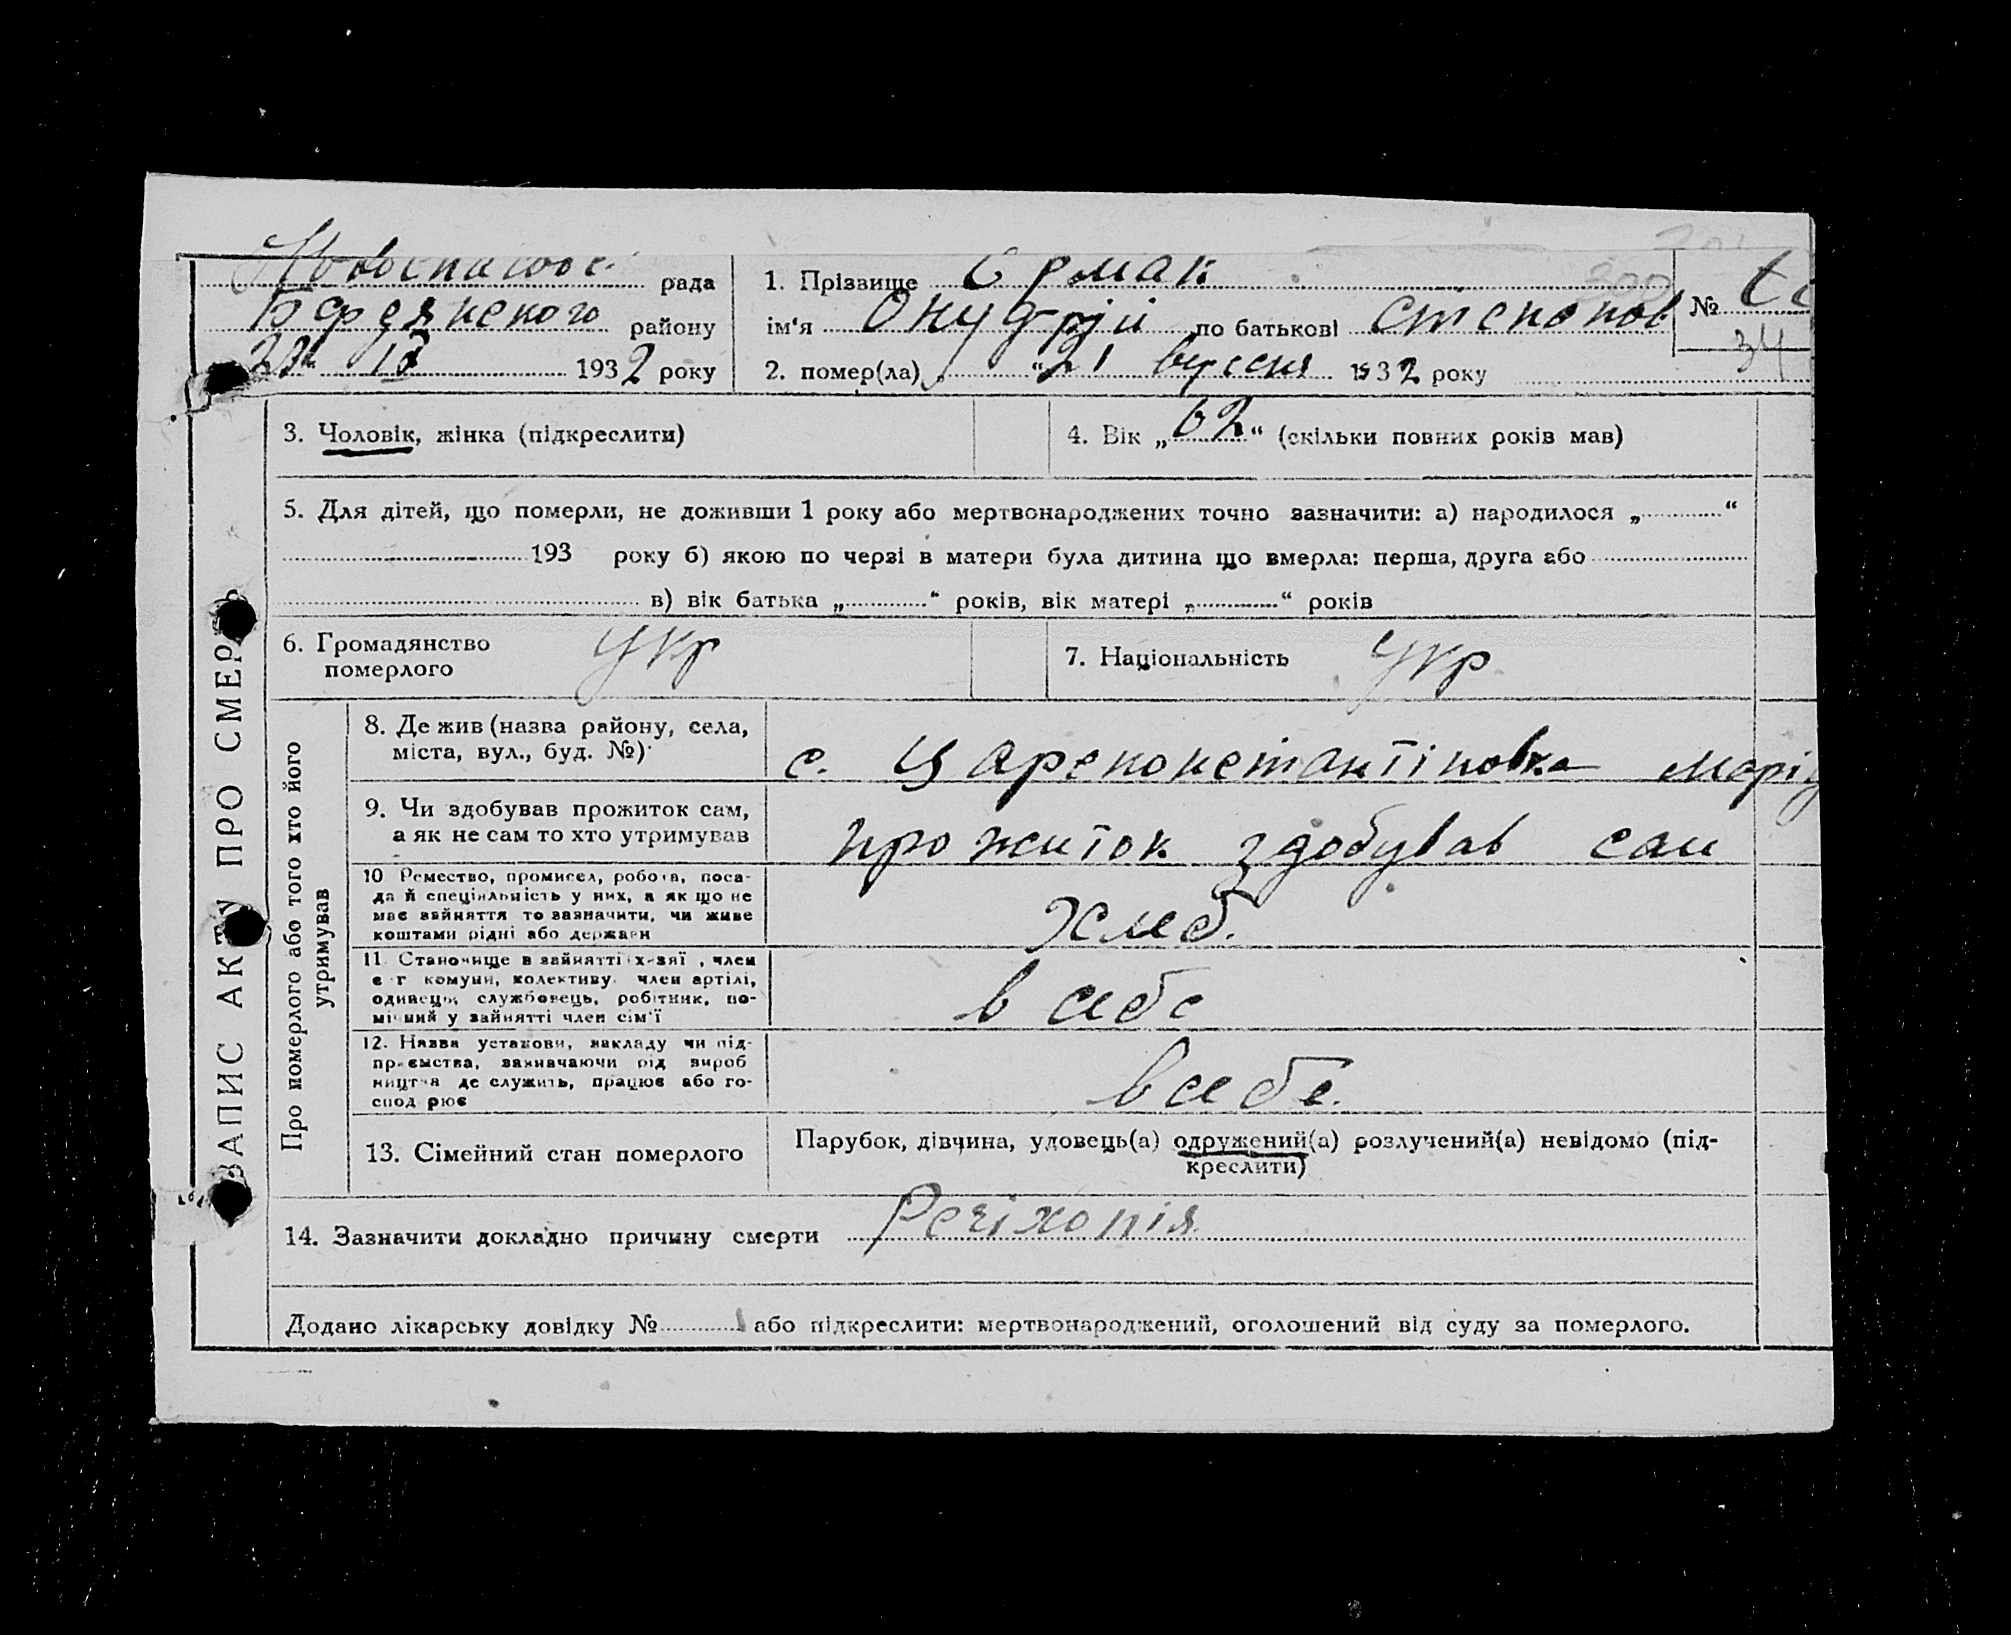 рада
Бердянского району
1932 року
1. Прізвище Єрмак
ім‘я Онудрій по батькові Степанов
№
34
2. помер(ла) „ “ 21 вересня 1932 року
ЗАПИС АКТУ ПРО СМЕРТЬ
3. Чоловік, жінка (підкреслити)
4. Вік „62“ (скільки повних років мав)
5. Для дітей, що померли, не доживши 1 року або мертвонароджених точно зазначити: а) народилося „ “
193 року б) якою по черзі в матери була дитина що вмерла: перша, друга або
в) вік батька „ “ років, вік матері „ “ років
6. Громадянство
померлого
Укр
7. Національність Укр
Про померлого або того хто його
утримував
8. Де жив (назва району, села,
міста, вул., буд. №)
с. Цареконстантіновка Марі
9. Чи здобував прожиток сам,
а як не сам то хто утримував
прожиток здобував сам
10 Ремество, промисел, робота, поса-
да й спеціяльність у них, а як що не
має зайняття то зазначити, чи живе
коштами рідні або держави
Хлеб.
11. Становище в зайнятті , член
с г комуни, колективу, член артілі,
одинець, службовець, робітник, по-
мічний у зайнятті член сім'ї
в себе
12. Назва установи, закладу чи під-
приємства, зазначаючи рід вироб
ництва де служить, працює або го-
спод рює
в себе.
13. Сімейний стан померлого
Парубок, дівчина, удовець(а) одружений(а) розлучений(а) невідомо (під-
креслити)
14. Зазначити докладно причину смерти
Додано лікарську довідку № або підкреслити: мертвонароджений, оголошений від суду за померлого.